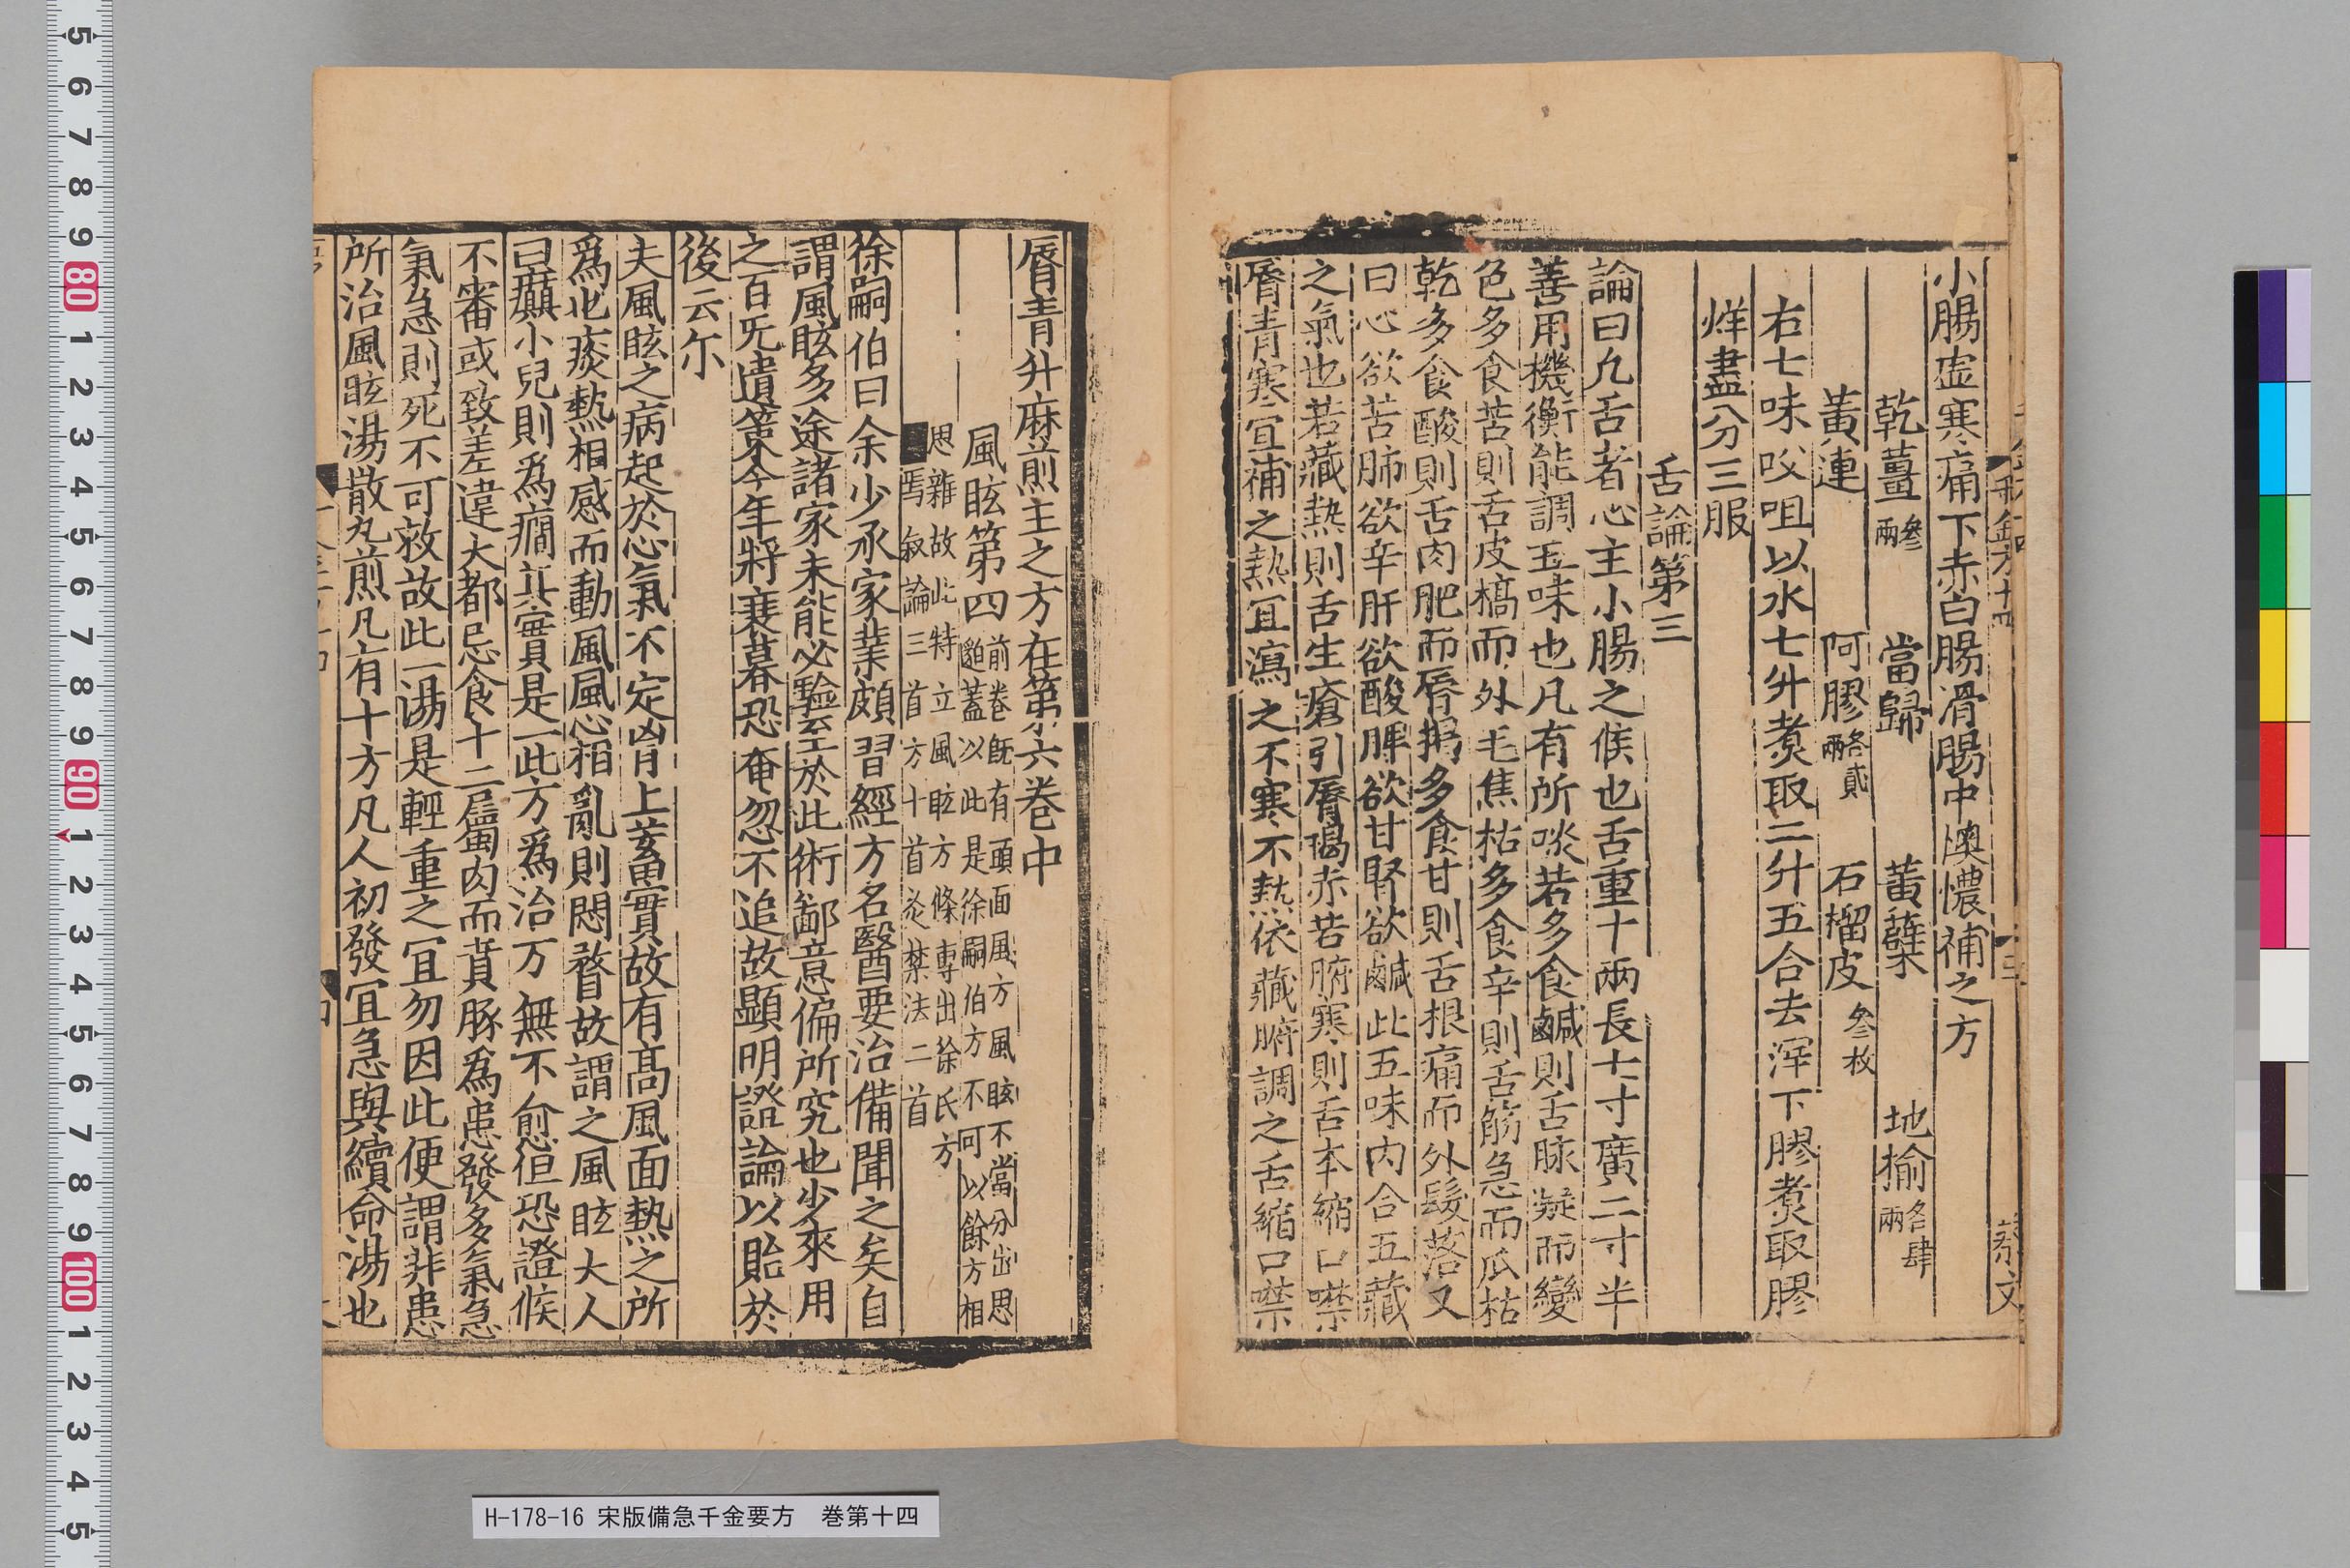 小腸虛寒痛下赤白腸滑腸中懊憹補之方
乾薑叄兩 當歸 黃蘗 地榆各肆兩
黃連 阿膠各貳兩 石榴皮叄枚
右七味㕮咀以水七升煮取二升五合去滓下膠煮取膠
烊盡分三服
舌論第三
論曰凡舌者心主小腸之候也舌重十兩長七寸廣二寸半
善用機衡能調五味也凡有所啖若多食鹹則舌脉凝而變
色多食苦則舌皮槁而外毛焦枯多食辛則舌筋急而爪枯
乾多食酸則舌肉肥而脣揭多食甘則舌根痛而外髮落又
曰心欲苦肺欲辛肝欲酸脾欲甘腎欲鹹此五味內合五藏
之氣也若藏熱則舌生瘡引脣揭赤若腑寒則舌本縮口噤
脣青寒宜補之熱宜瀉之不寒不熱依藏腑調之舌縮口噤
脣青升麻煎主之方在第六卷中
風眩第四
前卷旣有頭面風方風眩不當分出思
邈蓋以此是徐嗣伯方不可以餘方相
思雜故此特立風眩方條專出徐氏方
焉叙論三首方十首灸禁法二首
徐嗣伯曰余少承家業頗習經方名醫要治備聞之矣自
謂風眩多途諸家未能必驗至於此術鄙意偏所究也少來用
之百旡遺策今年將衰暮恐奄忽不追故顯明證論以貽於
後云尓
夫風眩之病起於心氣不定胷上蓄實故有高風面熱之所
爲也痰熱相感而動風風心相亂則悶瞀故謂之風眩大人
曰癲小兒則爲癎其實是一此方爲治万無不愈但恐證候
不審或致差違大都忌食十二屬肉而賁豚爲患發多氣急
氣急則死不可救故此一湯是輕重之宜勿因此便謂非患
所治風眩湯散丸煎凡有十方凡人初發宜急與續命湯也
H-178-16 宋版備急千金要方 巻第十四